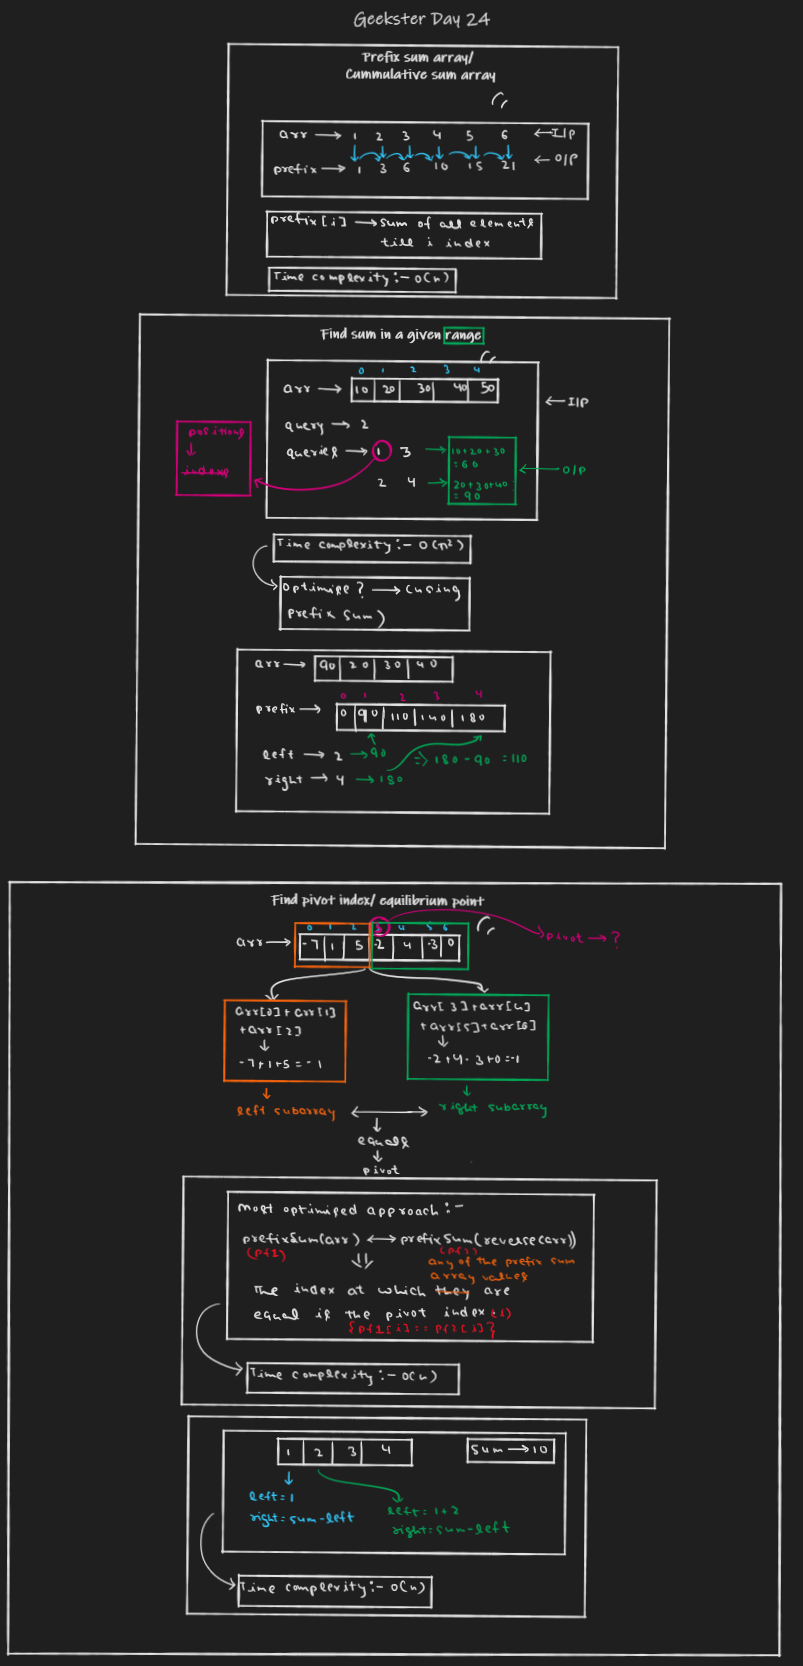 Geekster Day 24
Prefix sum array/
Cummulative sum array
arr → 1 2 3 4 5 6 ← I/P
prefix → 1 3 6 10 15 21 ← O/P
prefix[i] → sum of all elements
till i index
Time complexity:- O(n)
Find sum in a given range
0 1 2 3 4
arr → 10 20 30 40 50
← I/P
query → 2
positions
↓
indexs
queries → 1 3 → 10+20+30
= 60
← O/P
2 4 → 20+30+40
= 90
Time complexity:- O(n²)
Optimise? → (using
prefix sum)
arr → 90 20 30 40
0 1 2 3 4
prefix → 0 90 110 140 180
left → 2 → 90
⇒ 180 - 90 = 110
right → 4 → 180
Find pivot index/ equilibrium point
0 1 2 3 4 5 6
arr → -7 1 5 -2 4 -3 0
pivot → ?
arr[0]+arr[1]
+arr[2]
↓
-7+1+5=-1
arr[3]+arr[4]
+arr[5]+arr[6]
↓
-2+4-3+0=-1
left subarray ↔ right subarray
↓
equals
↓
pivot
most optimised approach:-
prefixSum(arr) ↔ prefixSum(reverse(arr))
(pf1) (pf2)
any of the prefix sum
array values
The index at which they are
equal is the pivot index (i)
{pf1[i] == pf2[i]}
Time complexity:- O(n)
1 2 3 4
sum → 10
left=1
right=sum-left
left=1+2
right=sum-left
Time complexity:- O(n)